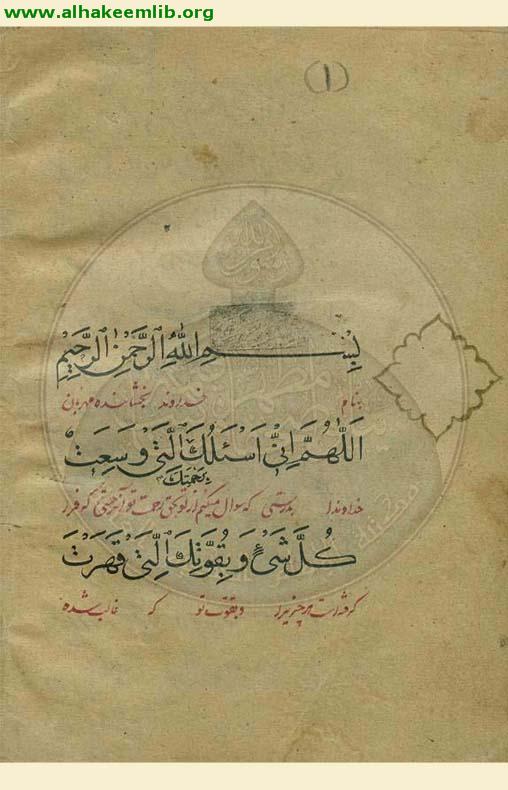 www.alhakeemlib.org
(١)
بِسْمِ اللّٰهِ الرَّحْمٰنِ الرَّحِيْمِ
بنام خداوند بخشاینده مهربان
اَللّٰهُمَّ اِنّٖى اَسْئَلُكَ الَّتٖى وَسِعَتْ
بِرَحْمَتِكَ
خداوندا بدرستی که سوال میکنم از تو بحق رحمت تو آنرحمتی که فرا
كُلَّ شَىْءٍ وَ بِقُوَّتِكَ الَّتٖى قَهَرْتَ
گرفته است هر چیز را و بقوت تو که غالب شده